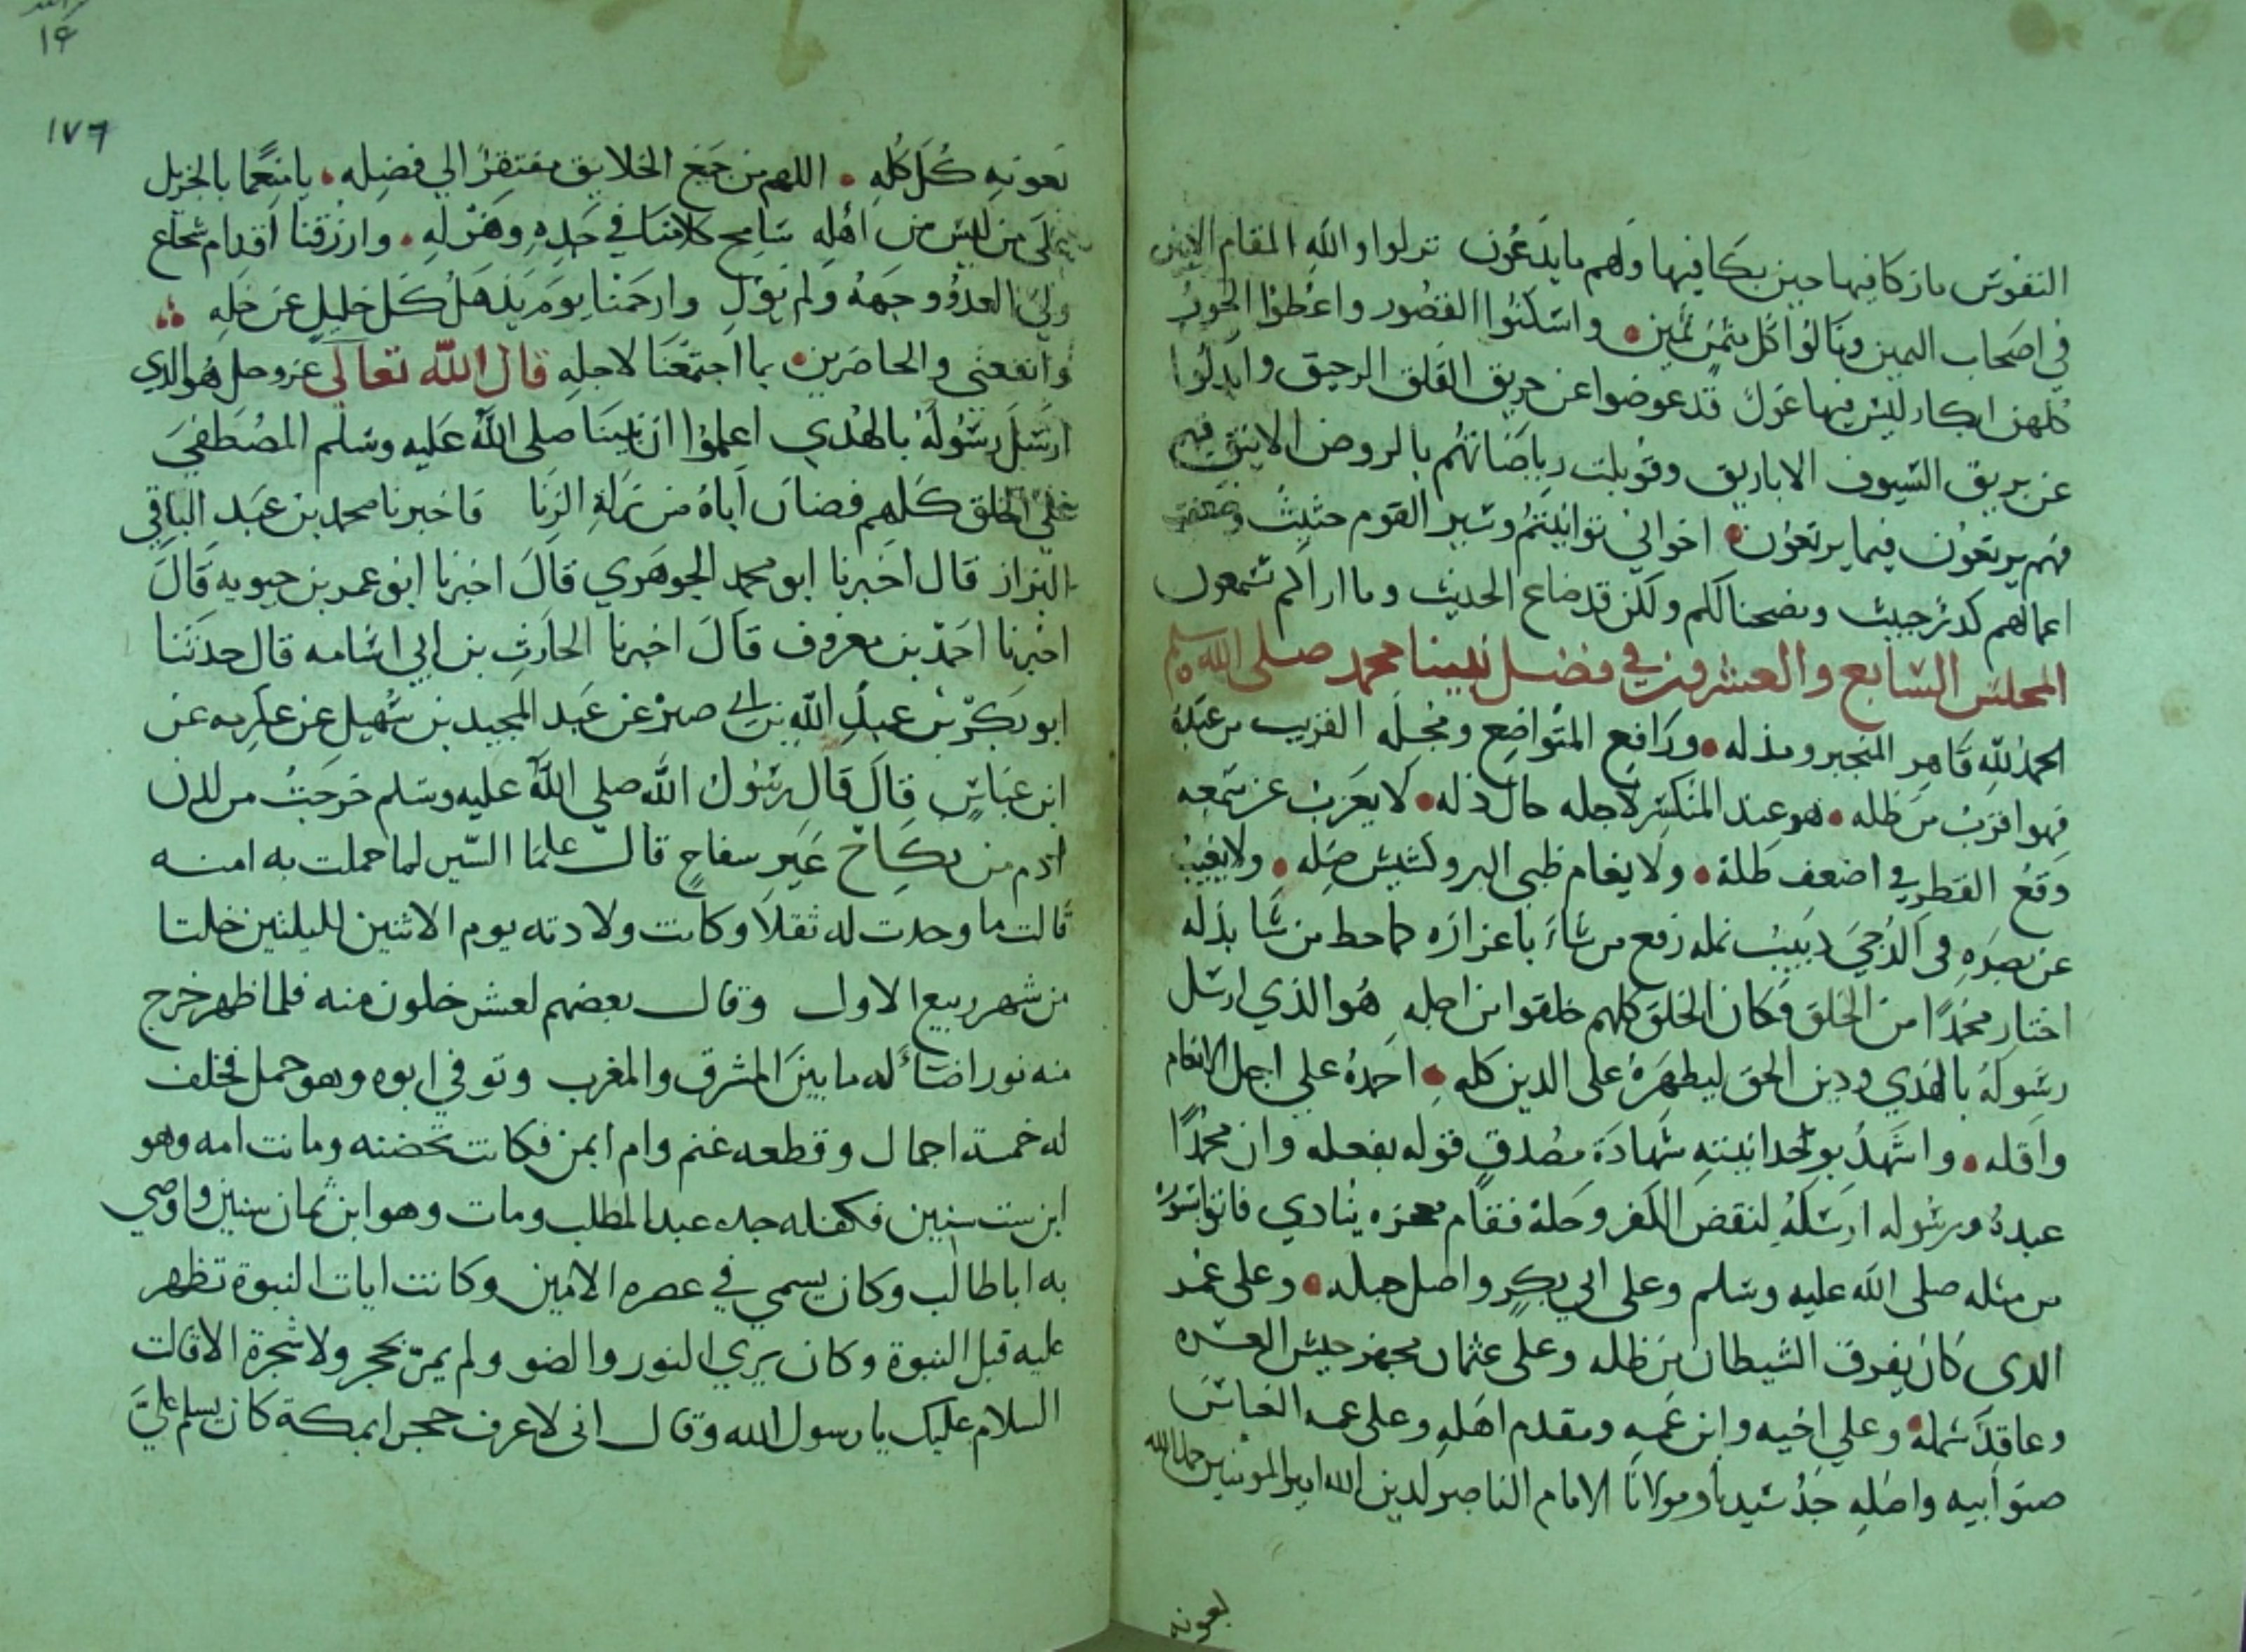 النفوس ما زكا فيها حين بكا فيها ولهم ما يدعون نزلوا والله المقام الامين
في اصحاب اليمين ونالوا كل مثمن ثمين واسكنوا القصور واعطوا الحور
كلهن ابكار ليس فيها غول قد عوضوا عن حريق القلق الرحيق وابدلوا
عن بريق السيوف الاباريق وقوبلت رياضاتهم بالروض الانيق فهم
فهم يرتعون فيما يرتعون اخواني توانيتم وسير القوم حثيث
اعمالهم كدر خبيث ونصحنا لكم ولكن قد ضاع الحديث وما اراكم تسمعون
المجلس السابع والعشرون في فضل نبينا محمد صلى الله عليه وسلم
الحمد لله قاهر المتجبر ومذله ورافع المتواضع ومجله القريب من عبده
فهو اقرب من ظله هو عند المنكسر لاجله حال ذله لا يعزب عن سمعه
وقع القطر في اضعف طله ولا بغام ظبي البر وكشيش صله ولا يغيب
عن بصره في الدجى دبيب نمله رفع من شاء باعزازه كما حط من شا بذله
اختار محمدا من الخلق فكان الخلق كلهم خلقوا من اجله هو الذي ارسل
رسوله بالهدي ودين الحق ليظهره على الدين كله احمده علي اجل الانعام
واقله واشهد بوحدانيته شهادة مصدق قوله بفعله وان محمدا
عبده ورسوله ارسله لنقض الكفر وحله فقام معجزه ينادي فاتوا بسوره
من مثله صلى الله عليه وسلم وعلى ابي بكر واصل حبله وعلى عمر
الدى كان يفرق الشيطان من ظله وعلى عثمان مجهز جيش العسره
وعاقد شمله وعلي اخيه وابن عمه ومقدم اهله وعلى عمه العباس
صنو ابيه واصله جد سيدنا ومولانا الامام الناصر لدين الله امير المومنين
بعونه
١٤
١٧٦
بعونه كل كله اللهم من جميع الخلايق مفتقر الي فضله يا منعما بالجزيل
على من ليس من اهله سامح كلامنا في جده وهزله وارزقنا اقدام شجاع
ولى العدو وجهه ولم يول وارحمنا يوم يذهل كل خليل عن خله
وانفعنى والحاضرين بما اجتمعنا لاجله قال الله تعالى عز وجل هو الدي
ارسل رسوله بالهدي اعلموا ان نبينا صلى الله عليه وسلم المصطفي
على الخلق كلهم فصان اباه من زلة الزنا فاخبرنا محمد بن عبد الباقي
البزاز قال اخبرنا ابو محمد الجوهري قال اخبرنا ابو عمر بن حيويه قال
اخبرنا احمد بن معروف قال اخبرنا الحارث بن ابي اسامه قال حدثنا
ابو بكر بن عبد الله بن ابي عن عبد المجيد بن سهيل عن عكرمه عن
ابن عباس قال قال رسول الله صلى الله عليه وسلم خرجت من لدن
ادم من نكاح غير سفاح قال علما السير لما حملت به امنه
قالت ما وجدت له ثقلا وكانت ولادته يوم الاثنين لليلتين خلتا
من شهر ربيع الاول وقال بعضهم لعشر خلون منه فلما ظهر خرج
منه نور اضاء له ما بين المشرق والمغرب وتوفي ابوه وهو حمل فخلف
له خمسة اجمال وقطعه غنم وام ايمن فكانت تحضنه وماتت امه وهو
ابن ست سنين فكفله جده عبد المطلب ومات وهو ابن ثمان سنين واوصي
به ابا طالب وكان يسمي في عصره الامين وكانت ايات النبوة تظهر
عليه قبل النبوة وكان يري النور والضو ولم يمر بحجر ولا شجرة الا قالت
السلام عليك يا رسول الله وقال انى لاعرف حجرا بمكة كان يسلم عليَّ